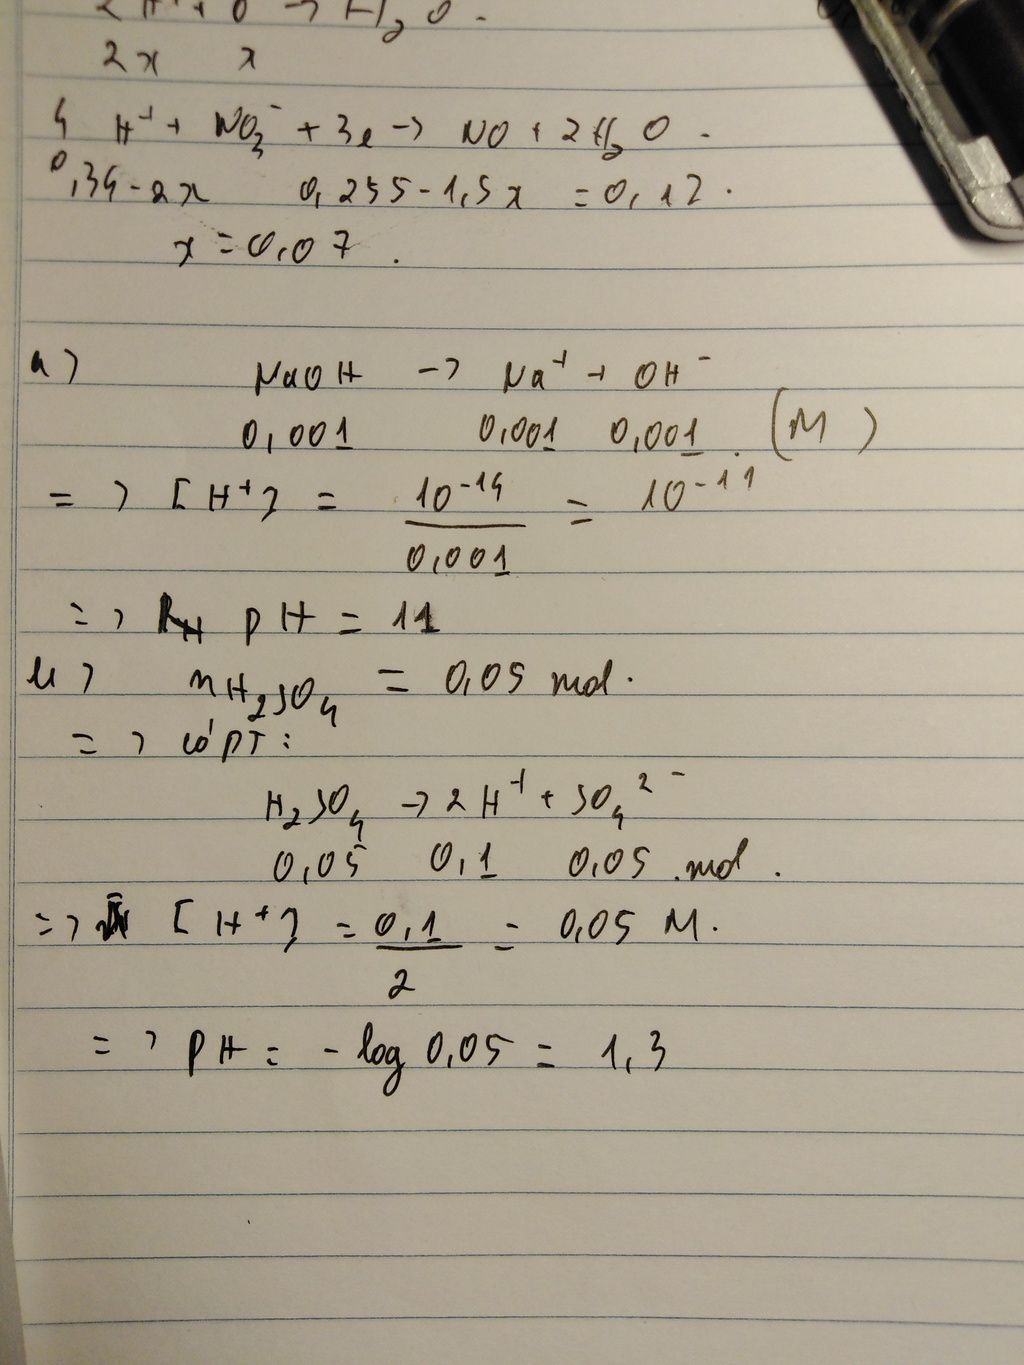 2H⁺ + O → H₂O.
2x x
4H⁺ + NO₃⁻ + 3e → NO + 2H₂O.
0,34-2x 0,255-1,5x = 0,12.
x = 0,07.
a) NaOH → Na⁺ + OH⁻
0,001 0,001 0,001. (M)
=> [H⁺] = 10⁻¹⁴ / 0,001 = 10⁻¹¹
=> pH = 11
b) nH₂SO₄ = 0,05 mol.
=> có PT:
H₂SO₄ → 2H⁺ + SO₄²⁻
0,05 0,1 0,05 mol.
=> [H⁺] = 0,1 / 2 = 0,05 M.
=> pH = -log 0,05 = 1,3